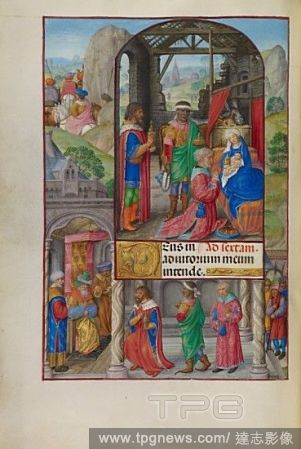 Eus in Ad sextam.
adiutorium meum
intende.
TPG
www.tpgnews.com / 達志影像